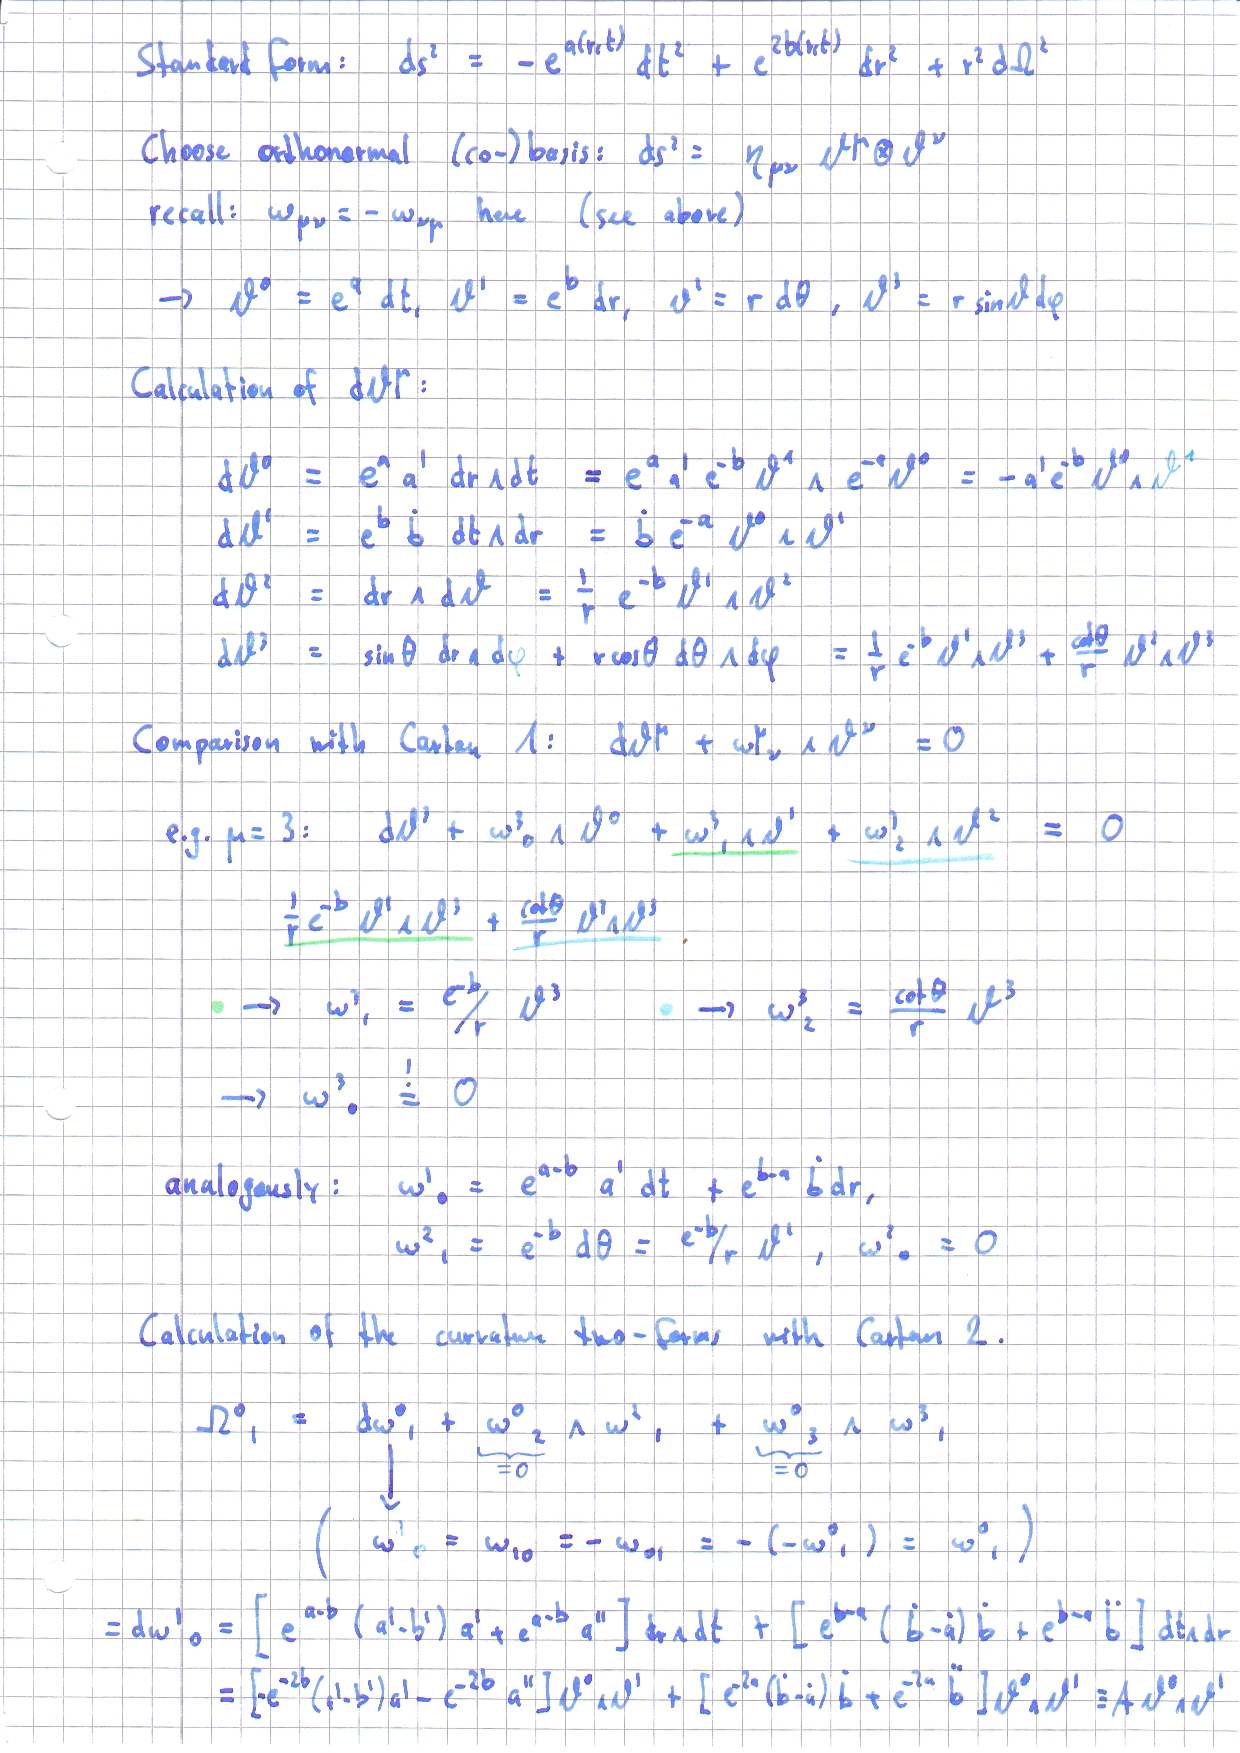 Standard form: ds² = -e^{a(r,t)} dt² + e^{2b(r,t)} dr² + r² dΩ²
Choose orthonormal (co-)basis: ds² = η_{μν} ϑ^μ ⊗ ϑ^ν
recall: ω_{μν} = - ω_{νμ} here (see above)
→ ϑ⁰ = e^a dt, ϑ¹ = e^b dr, ϑ¹ = r dθ, ϑ³ = r sinϑ dφ
Calculation of dϑ^μ:
dϑ⁰ = e^a a' dr ∧ dt = e^a a' e^{-b} ϑ¹ ∧ e^{-a} ϑ⁰ = -a' e^{-b} ϑ⁰ ∧ ϑ¹
dϑ¹ = e^b ḃ dt ∧ dr = ḃ e^{-a} ϑ⁰ ∧ ϑ¹
dϑ² = dr ∧ dϑ = 1/r e^{-b} ϑ¹ ∧ ϑ²
dϑ³ = sinθ dr ∧ dφ + r cosθ dθ ∧ dφ = 1/r e^{-b} ϑ¹ ∧ ϑ³ + cotθ/r ϑ² ∧ ϑ³
Comparison with Cartan 1: dϑ^μ + ω^μ_ν ∧ ϑ^ν = 0
e.g. μ = 3: dϑ³ + ω³₀ ∧ ϑ⁰ + ω³₁ ∧ ϑ¹ + ω³₂ ∧ ϑ² = 0
1/r e^{-b} ϑ¹ ∧ ϑ³ + cotθ/r ϑ² ∧ ϑ³
• → ω³₁ = e^{-b}/r ϑ³ • → ω³₂ = cotθ/r ϑ³
→ ω³₀ =! 0
analogously: ω¹₀ = e^{a-b} a' dt + e^{b-a} ḃ dr,
ω²₁ = e^{-b} dθ = e^{-b}/r ϑ², ω²₀ = 0
Calculation of the curvature two-forms with Cartan 2.
Ω⁰₁ = dω⁰₁ + ω⁰₂ ∧ ω²₁ + ω⁰₃ ∧ ω³₁
=0 =0
( ω¹₀ = ω₁₀ = - ω₀₁ = - (-ω⁰₁) = ω⁰₁ )
= dω¹₀ = [e^{a-b} (a'-b') a' + e^{a-b} a''] dr ∧ dt + [e^{b-a} (ḃ-ȧ) ḃ + e^{b-a} b̈] dt ∧ dr
= [-e^{-2b} (a'-b') a' - e^{-2b} a''] ϑ⁰ ∧ ϑ¹ + [e^{-2a} (ḃ-ȧ) ḃ + e^{-2a} b̈] ϑ⁰ ∧ ϑ¹ ≡ A ϑ⁰ ∧ ϑ¹